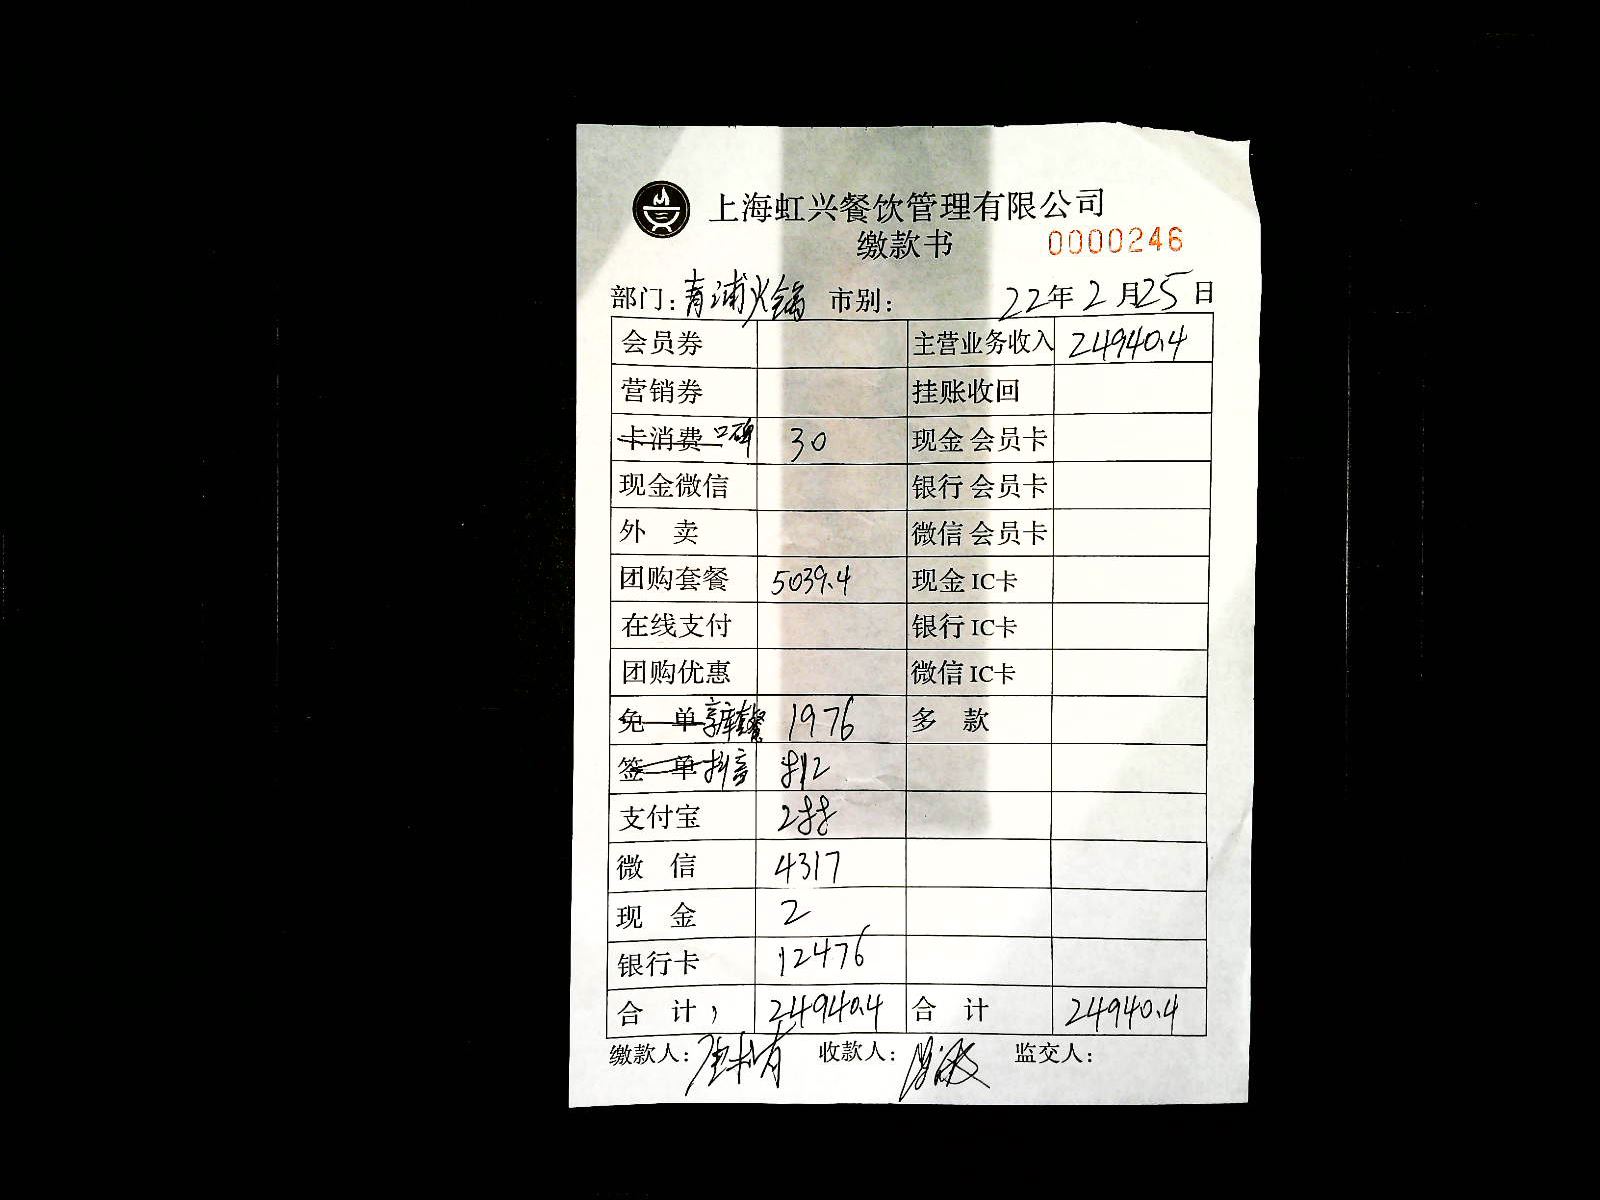 上海虹兴餐饮管理有限公司
缴款书 0000246
部门: 青浦火锅 市别: 22年2月25日
会员券 主营业务收入 24940.4
营销券 挂账收回
卡消费 口碑 30 现金 会员卡
现金微信 银行 会员卡
外 卖 微信 会员卡
团购套餐 5039.4 现金 IC卡
在线支付 银行 IC卡
团购优惠 微信 IC卡
免 单 套餐 1976 多 款
签 单 抖音 812
支付宝 288
微 信 4317
现 金 2
银行卡 12476
合 计 24940.4 合 计 24940.4
缴款人: 收款人: 监交人: